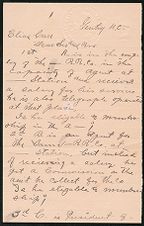 Dear Sir & Bro
1st A is in the employ
of the — R.R. Co. in the
capacity of Agent at
— Station and receives
a salary for his services
he is also telegraph operator
at that station.
Is he eligible to member-
ship in the a—?
2d B is an agent for
the same R.R. Co. at
— Station, but instead
of receiving a salary he
get a Commission on the
am't he collect for the Co.
Is he eligible to member-
ship?
3d C is President &